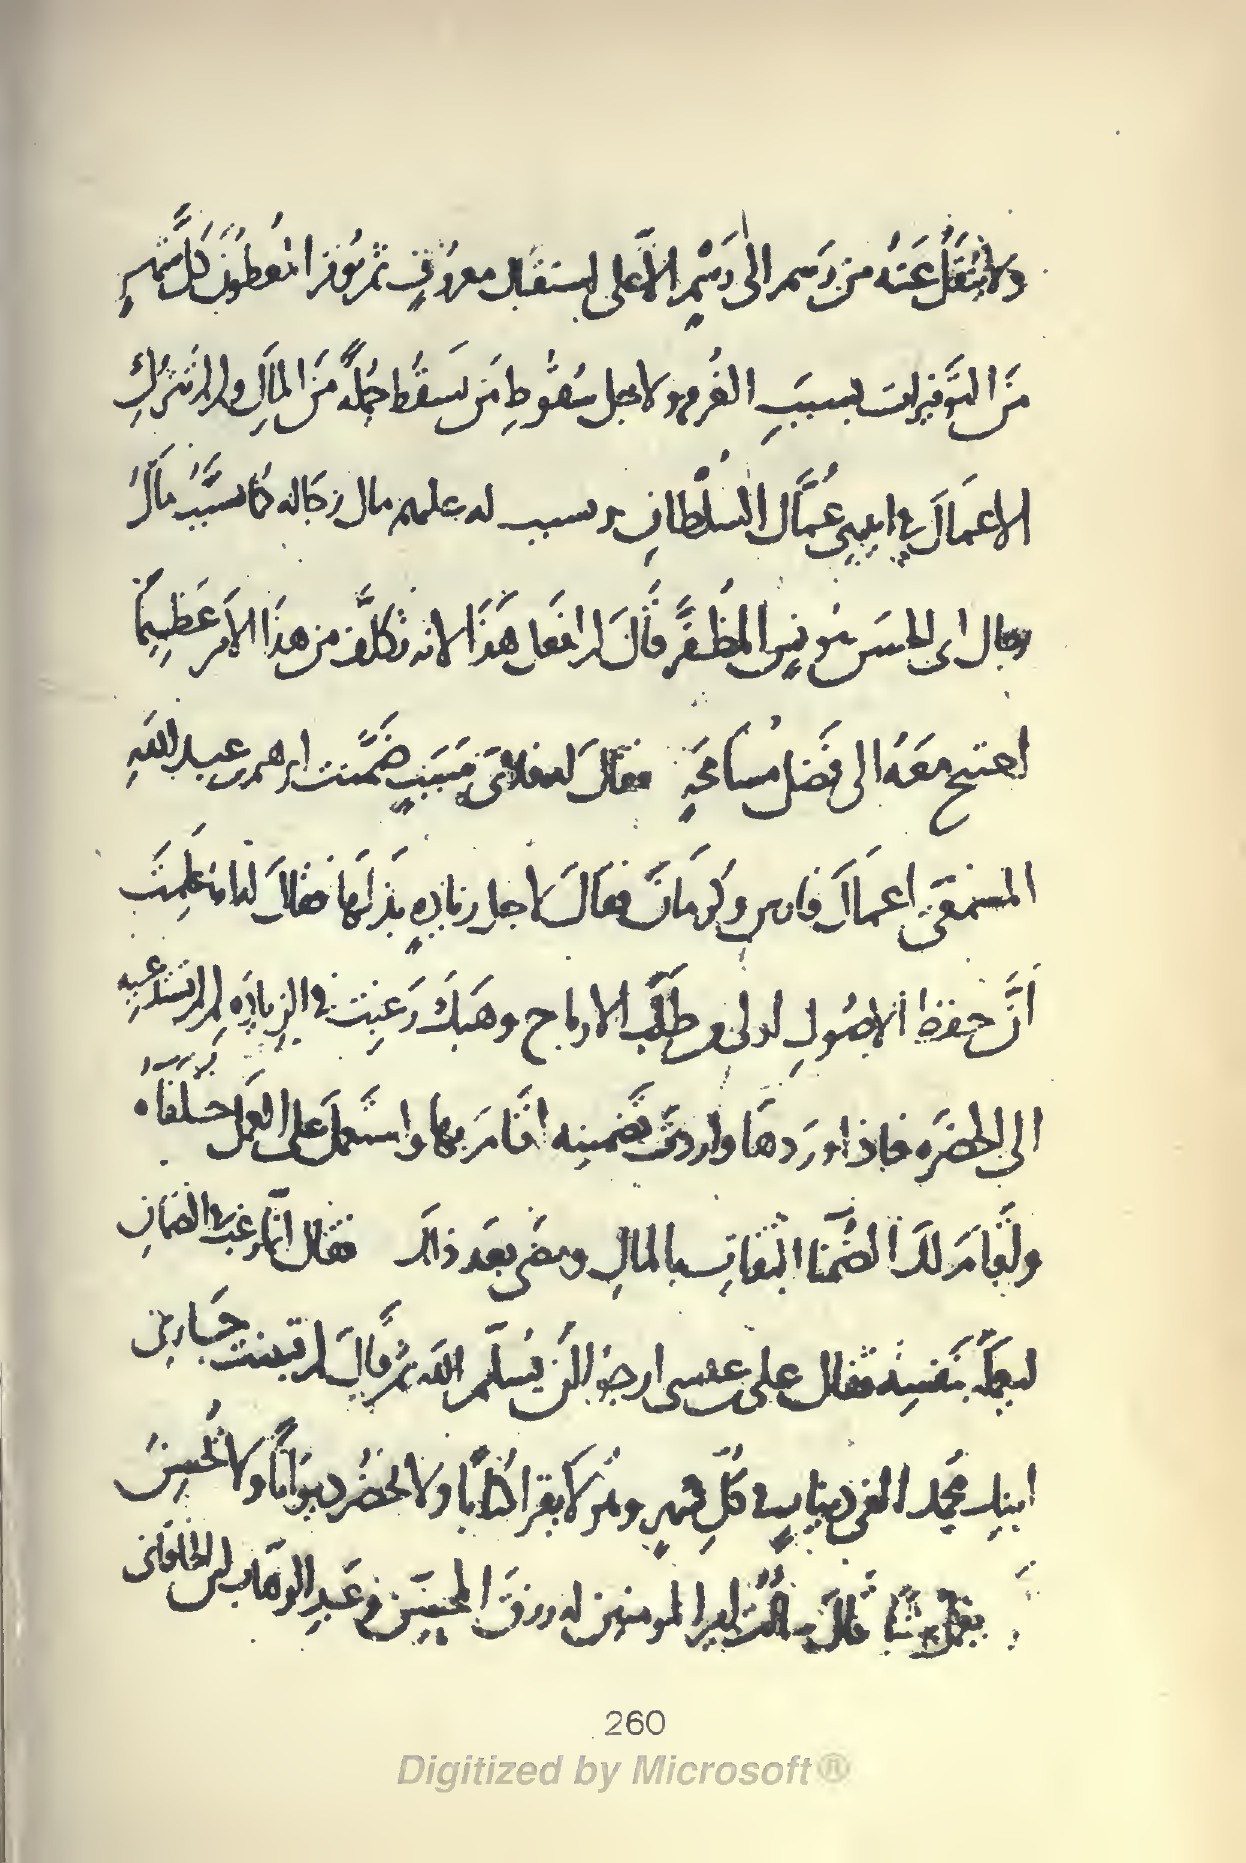 ولا ينقل عنه من رسم الى رسمٍ الا على استقبال معروفٍ ثم يوفر المعطون كل شهرٍ
من التوفيرات بسبب الغرم ولاجل سقوط من يسقط جملة من المال ولم لم تترك
الاعمال في ايدي عمال السلطان وسبب له عليهم مال رجاله كما سبب مال
رجال ابى الحسن مونس المظفر قال لم افعل هذا لانه تكلف من هذا الامر عظيماً
احتيج معه الى فضل مسامحةٍ فقال له فلاى سببٍ ضمنت ابرهم بن عبد الله
المسمعى اعمال فارس وكرمان فقال لاجل زيادةٍ بذلها فقال له اما علمت
ان حفظ الاصول اولى من طلب الارباح وهبك رغبت في الزيادة لم لم تستدعيه
الى الحضرة فاذا وردها واردت تضمينه اقام بها واستعمل على العمل خلفاء
ولقام لك الضمنا الثقات بالمال ومضى بعد ذلك فقال انما رغب في الضمان
ليعمله بنفسه فقال على بن عيسى ارجوا ان يسلم الله ثم قال لم تبينت جارى
ابنك محمد الفى دينارٍ في كل شهرٍ وهو لا يقرا كتاباً ولا يحضر ديواناً ولا يحسن
يعمل شيا قال سالت امير المومنين له رزق المحسن وعبد الوهاب ابن الخاقانى
260
Digitized by Microsoft®